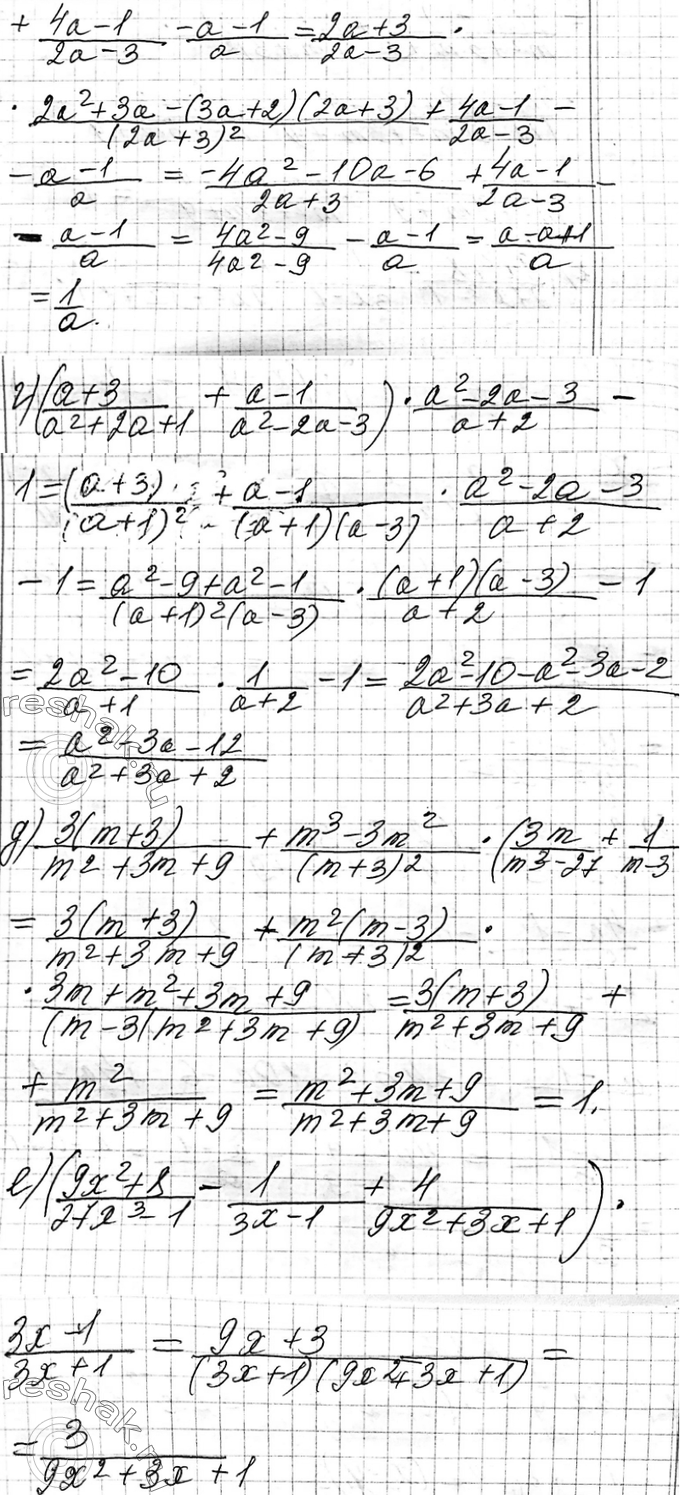 + (4a-1)/(2a-3) - (a-1)/a = (2a+3)/(2a-3) ·
· (2a²+3a-(3a+2)(2a+3))/(2a+3)² + (4a-1)/(2a-3) -
- (a-1)/a = (-4a²-10a-6)/(2a+3) + (4a-1)/(2a-3) -
- (a-1)/a = (4a²-9)/(4a²-9) - (a-1)/a = (a-a+1)/a
= 1/a.
г) ((a+3)/(a²+2a+1) + (a-1)/(a²-2a-3)) · (a²-2a-3)/(a+2) -
1 = ((a+3)/(a+1)² + (a-1)/((a+1)(a-3)) · (a²-2a-3)/(a+2)
- 1 = (a²-9+a²-1)/((a+1)²(a-3)) · ((a+1)(a-3))/(a+2) - 1
= (2a²-10)/(a+1) · 1/(a+2) - 1 = (2a²-10-a²-3a-2)/(a²+3a+2)
= (a²-3a-12)/(a²+3a+2)
д) 3(m+3)/(m²+3m+9) + (m³-3m²)/(m+3)² · (3m/(m³-27) + 1/(m-3)
= 3(m+3)/(m²+3m+9) + m²(m-3)/(m+3)² ·
· (3m+m²+3m+9)/((m-3)(m²+3m+9)) = 3(m+3)/(m²+3m+9) +
+ m²/(m²+3m+9) = (m²+3m+9)/(m²+3m+9) = 1.
е) ((9x²+8)/(27x³-1) - 1/(3x-1) + 4/(9x²+3x+1)) ·
(3x-1)/(3x+1) = (9x+3)/((3x+1)(9x²+3x+1)) =
= 3/(9x²+3x+1)
reshak.ru
reshak.ru